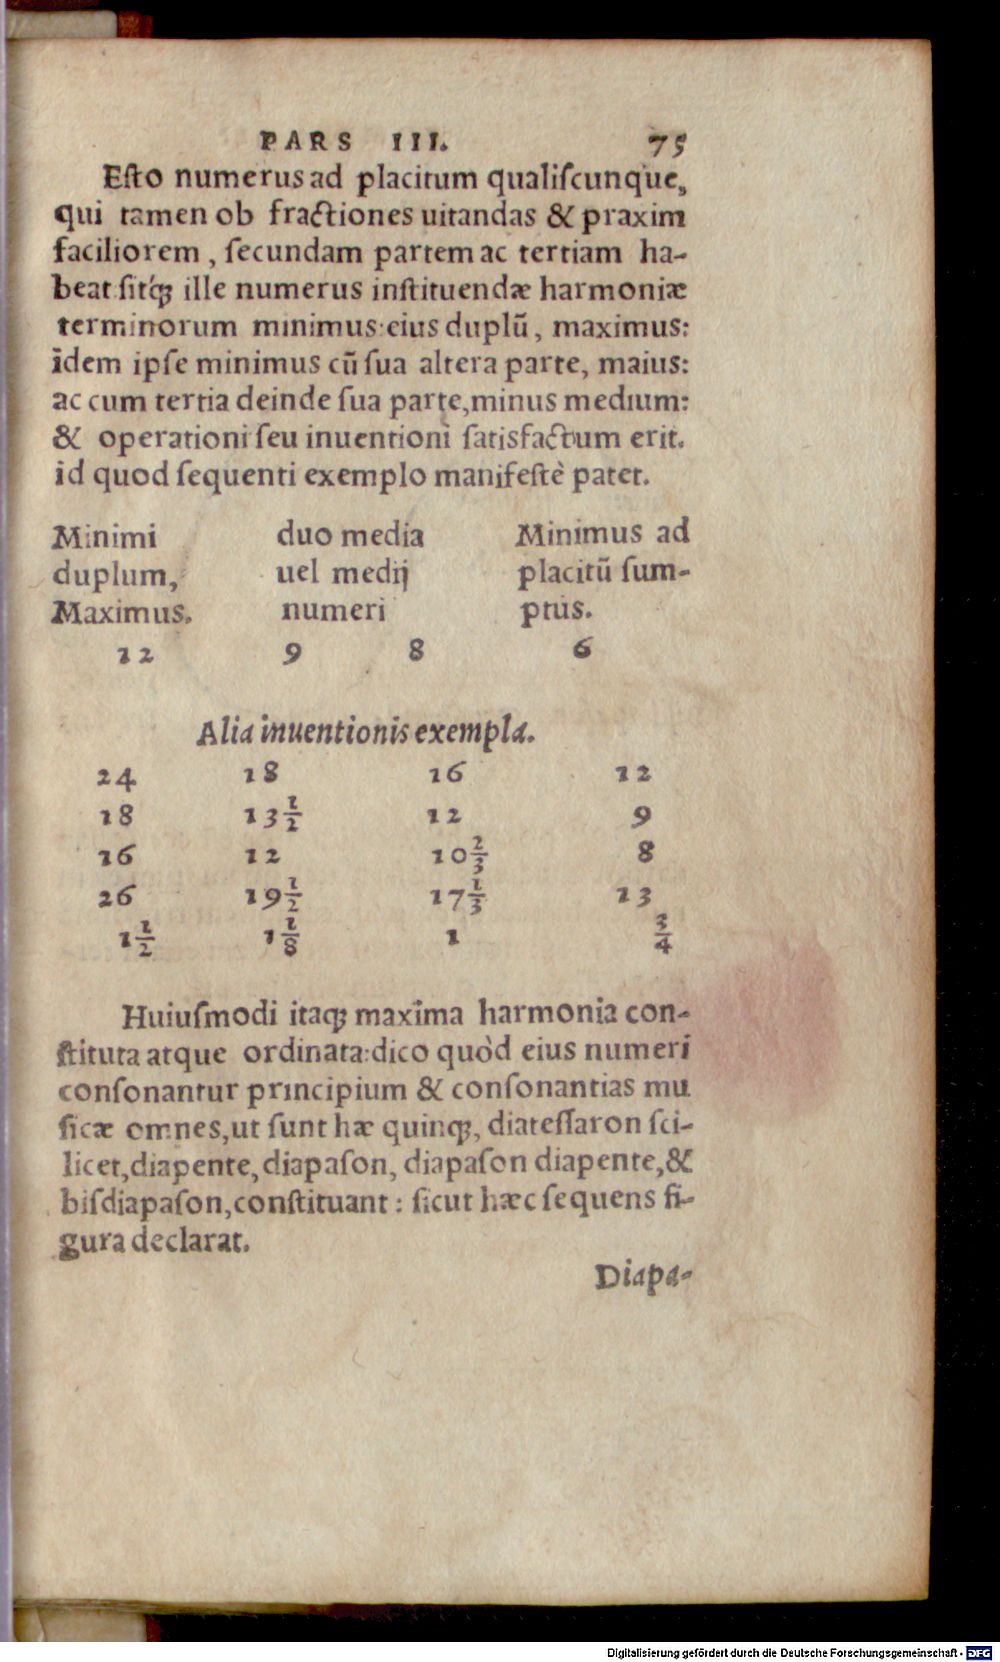 PARS III. 75
Eſto numerus ad placitum qualiſcunque,
qui tamen ob fractiones uitandas & praxim
faciliorem, ſecundam partem ac tertiam ha-
beat ſitq́; ille numerus inſtituendæ harmoniæ
terminorum minimus: eius duplũ, maximus:
idem ipſe minimus cũ ſua altera parte, maius:
ac cum tertia deinde ſua parte, minus medium:
& operationi ſeu inuentioni ſatisfactum erit.
id quod ſequenti exemplo manifeſtè patet.
Minimi duo media Minimus ad
duplum, uel medij placitũ ſum-
Maximus. numeri ptus.
12 9 8 6
Alia inuentionis exempla.
24 18 16 12
18 13 1/2 12 9
16 12 10 2/3 8
26 19 1/2 17 1/3 13
1 1/2 1 1/8 1 3/4
Huiuſmodi itaq; maxima harmonia con-
ſtituta atque ordinata: dico quòd eius numeri
conſonantur principium & conſonantias mu
ſicæ omnes, ut ſunt hæ quinq;, diateſſaron ſci-
licet, diapente, diapaſon, diapaſon diapente, &
biſdiapaſon, conſtituant: ſicut hæc ſequens fi-
gura declarat.
Diapa-
Digitalisierung gefördert durch die Deutsche Forschungsgemeinschaft - DFG